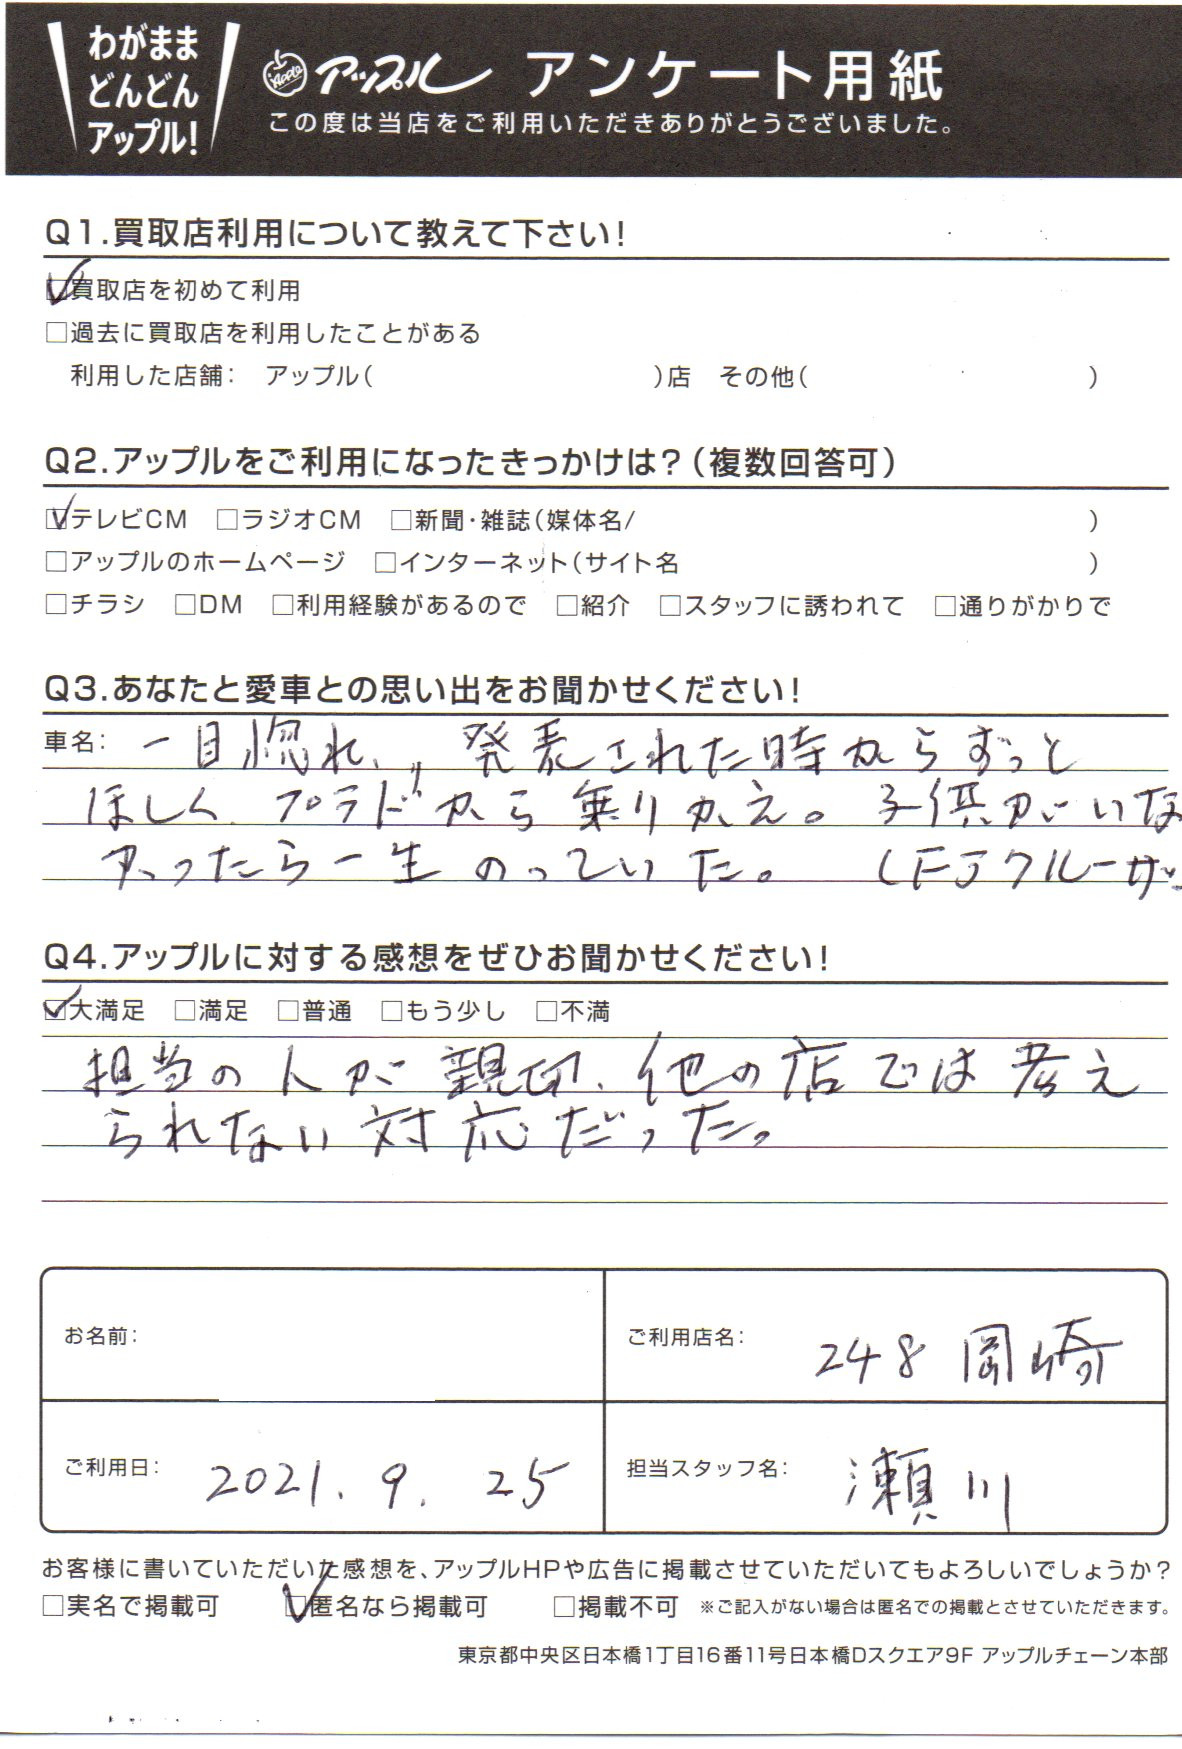 わがまま
どんどん
アップル!
Apple アップル アンケート用紙
この度は当店をご利用いただきありがとうございました。
Q1.買取店利用について教えて下さい!
☑買取店を初めて利用
□過去に買取店を利用したことがある
利用した店舗: アップル( )店 その他( )
Q2.アップルをご利用になったきっかけは?(複数回答可)
☑テレビCM □ラジオCM □新聞・雑誌(媒体名/ )
□アップルのホームページ □インターネット(サイト名 )
□チラシ □DM □利用経験があるので □紹介 □スタッフに誘われて □通りがかりで
Q3.あなたと愛車との思い出をお聞かせください!
車名: 一目惚れ、,, 発表された時からずっと
ほしく、プラドから乗りかえ。子供がいな
かったら一生のっていた。 (FJクルーザー
Q4.アップルに対する感想をぜひお聞かせください!
☑大満足 □満足 □普通 □もう少し □不満
担当の人が親切、他の店では考え
られない対応だった。
お名前:
ご利用店名: 248 岡崎
ご利用日: 2021. 9. 25
担当スタッフ名: 瀬川
お客様に書いていただいた感想を、アップルHPや広告に掲載させていただいてもよろしいでしょうか?
□実名で掲載可 ☑匿名なら掲載可 □掲載不可 ※ご記入がない場合は匿名での掲載とさせていただきます。
東京都中央区日本橋1丁目16番11号日本橋Dスクエア9F アップルチェーン本部